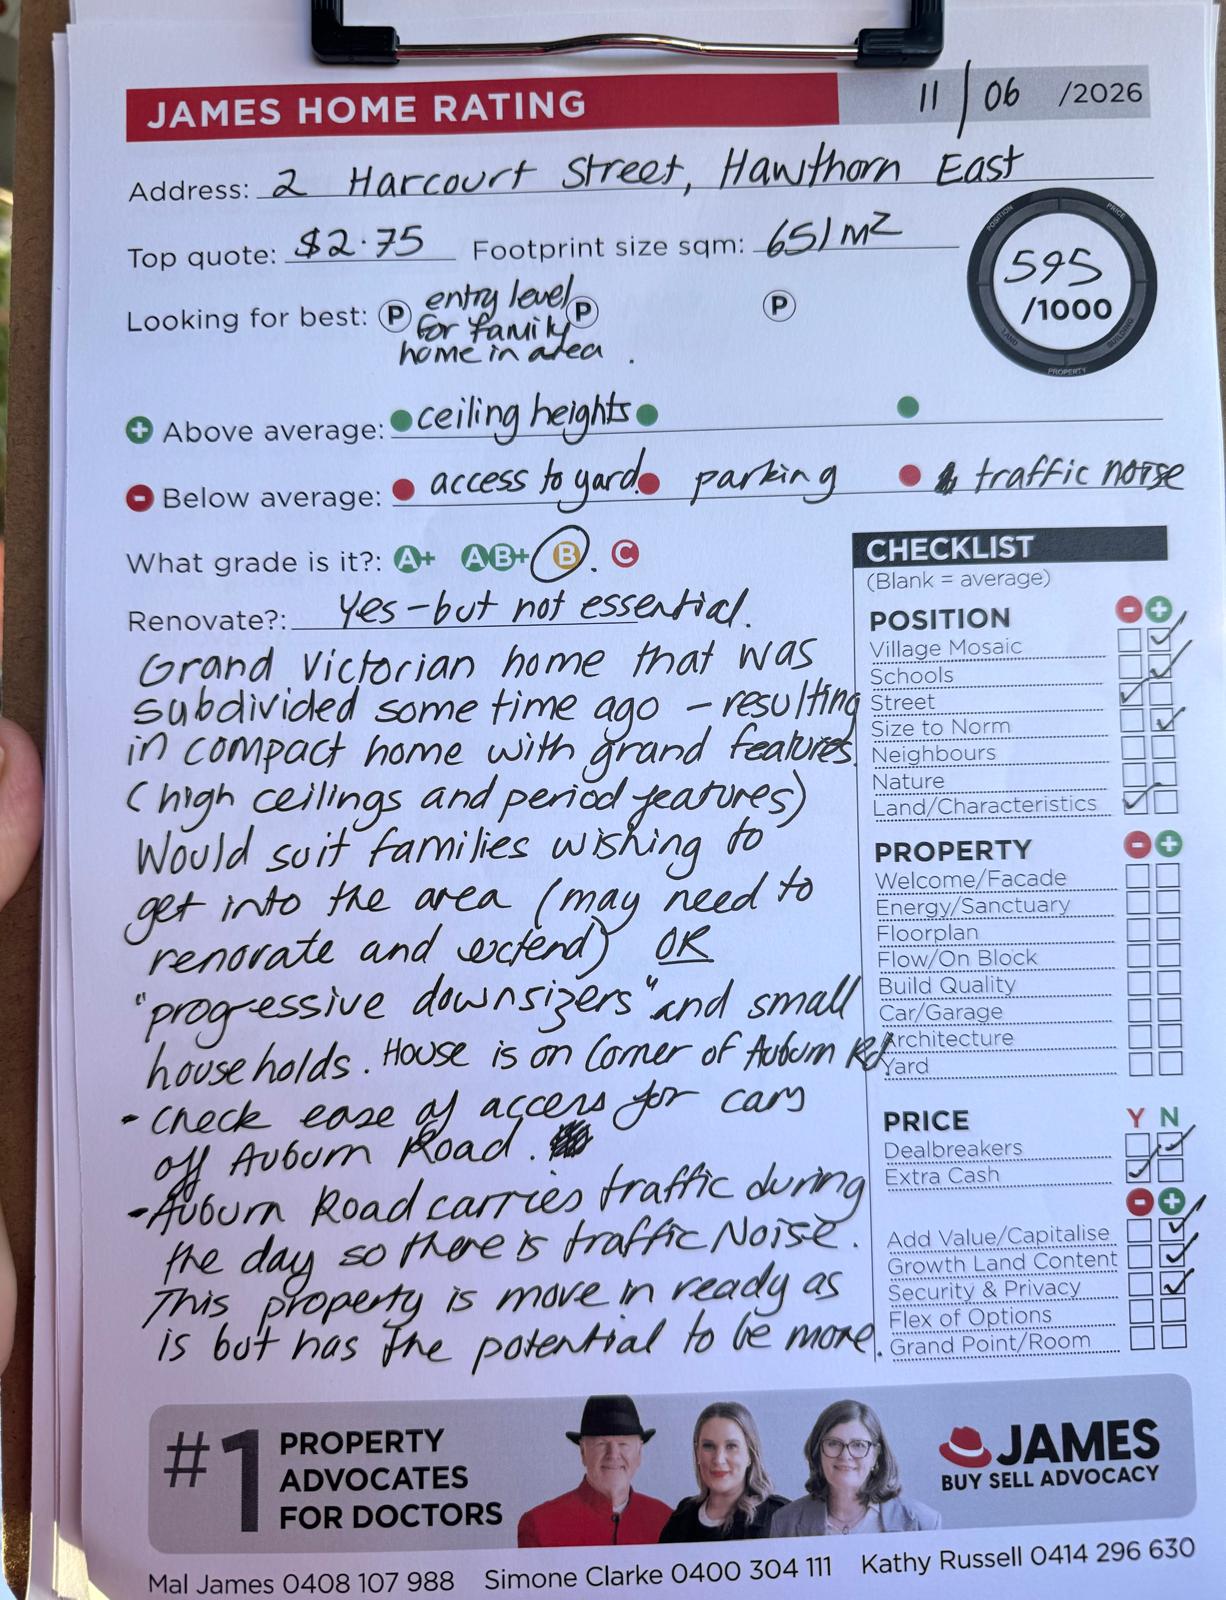 JAMES HOME RATING 11/06 /2026
Address: 2 Harcourt Street, Hawthorn East
Top quote: $2.75 Footprint size sqm: 651m2
POSITION PRICE BUILDING PROPERTY LAND
595
/1000
Looking for best: P entry level P P
for family
home in area .
+ Above average: ceiling heights
- Below average: access to yard parking traffic noise
What grade is it?: A+ AB+ B . C
Renovate?: Yes - but not essential.
Grand Victorian home that was
subdivided some time ago - resulting
in compact home with grand features
(high ceilings and period features)
Would suit families wishing to
get into the area (may need to
renovate and extend) OR
"progressive downsizers" and small
households. House is on Corner of Auburn Rd.
- Check ease of access for cars
off Auburn Road.
- Auburn Road carries traffic during
the day so there is traffic Noise.
This property is move in ready as
is but has the potential to be more.
CHECKLIST
(Blank = average)
POSITION - +
Village Mosaic
Schools
Street
Size to Norm
Neighbours
Nature
Land/Characteristics
PROPERTY - +
Welcome/Facade
Energy/Sanctuary
Floorplan
Flow/On Block
Build Quality
Car/Garage
Architecture
Yard
PRICE Y N
Dealbreakers
Extra Cash
- +
Add Value/Capitalise
Growth Land Content
Security & Privacy
Flex of Options
Grand Point/Room
#1 PROPERTY
ADVOCATES
FOR DOCTORS
JAMES
BUY SELL ADVOCACY
Mal James 0408 107 988 Simone Clarke 0400 304 111 Kathy Russell 0414 296 630